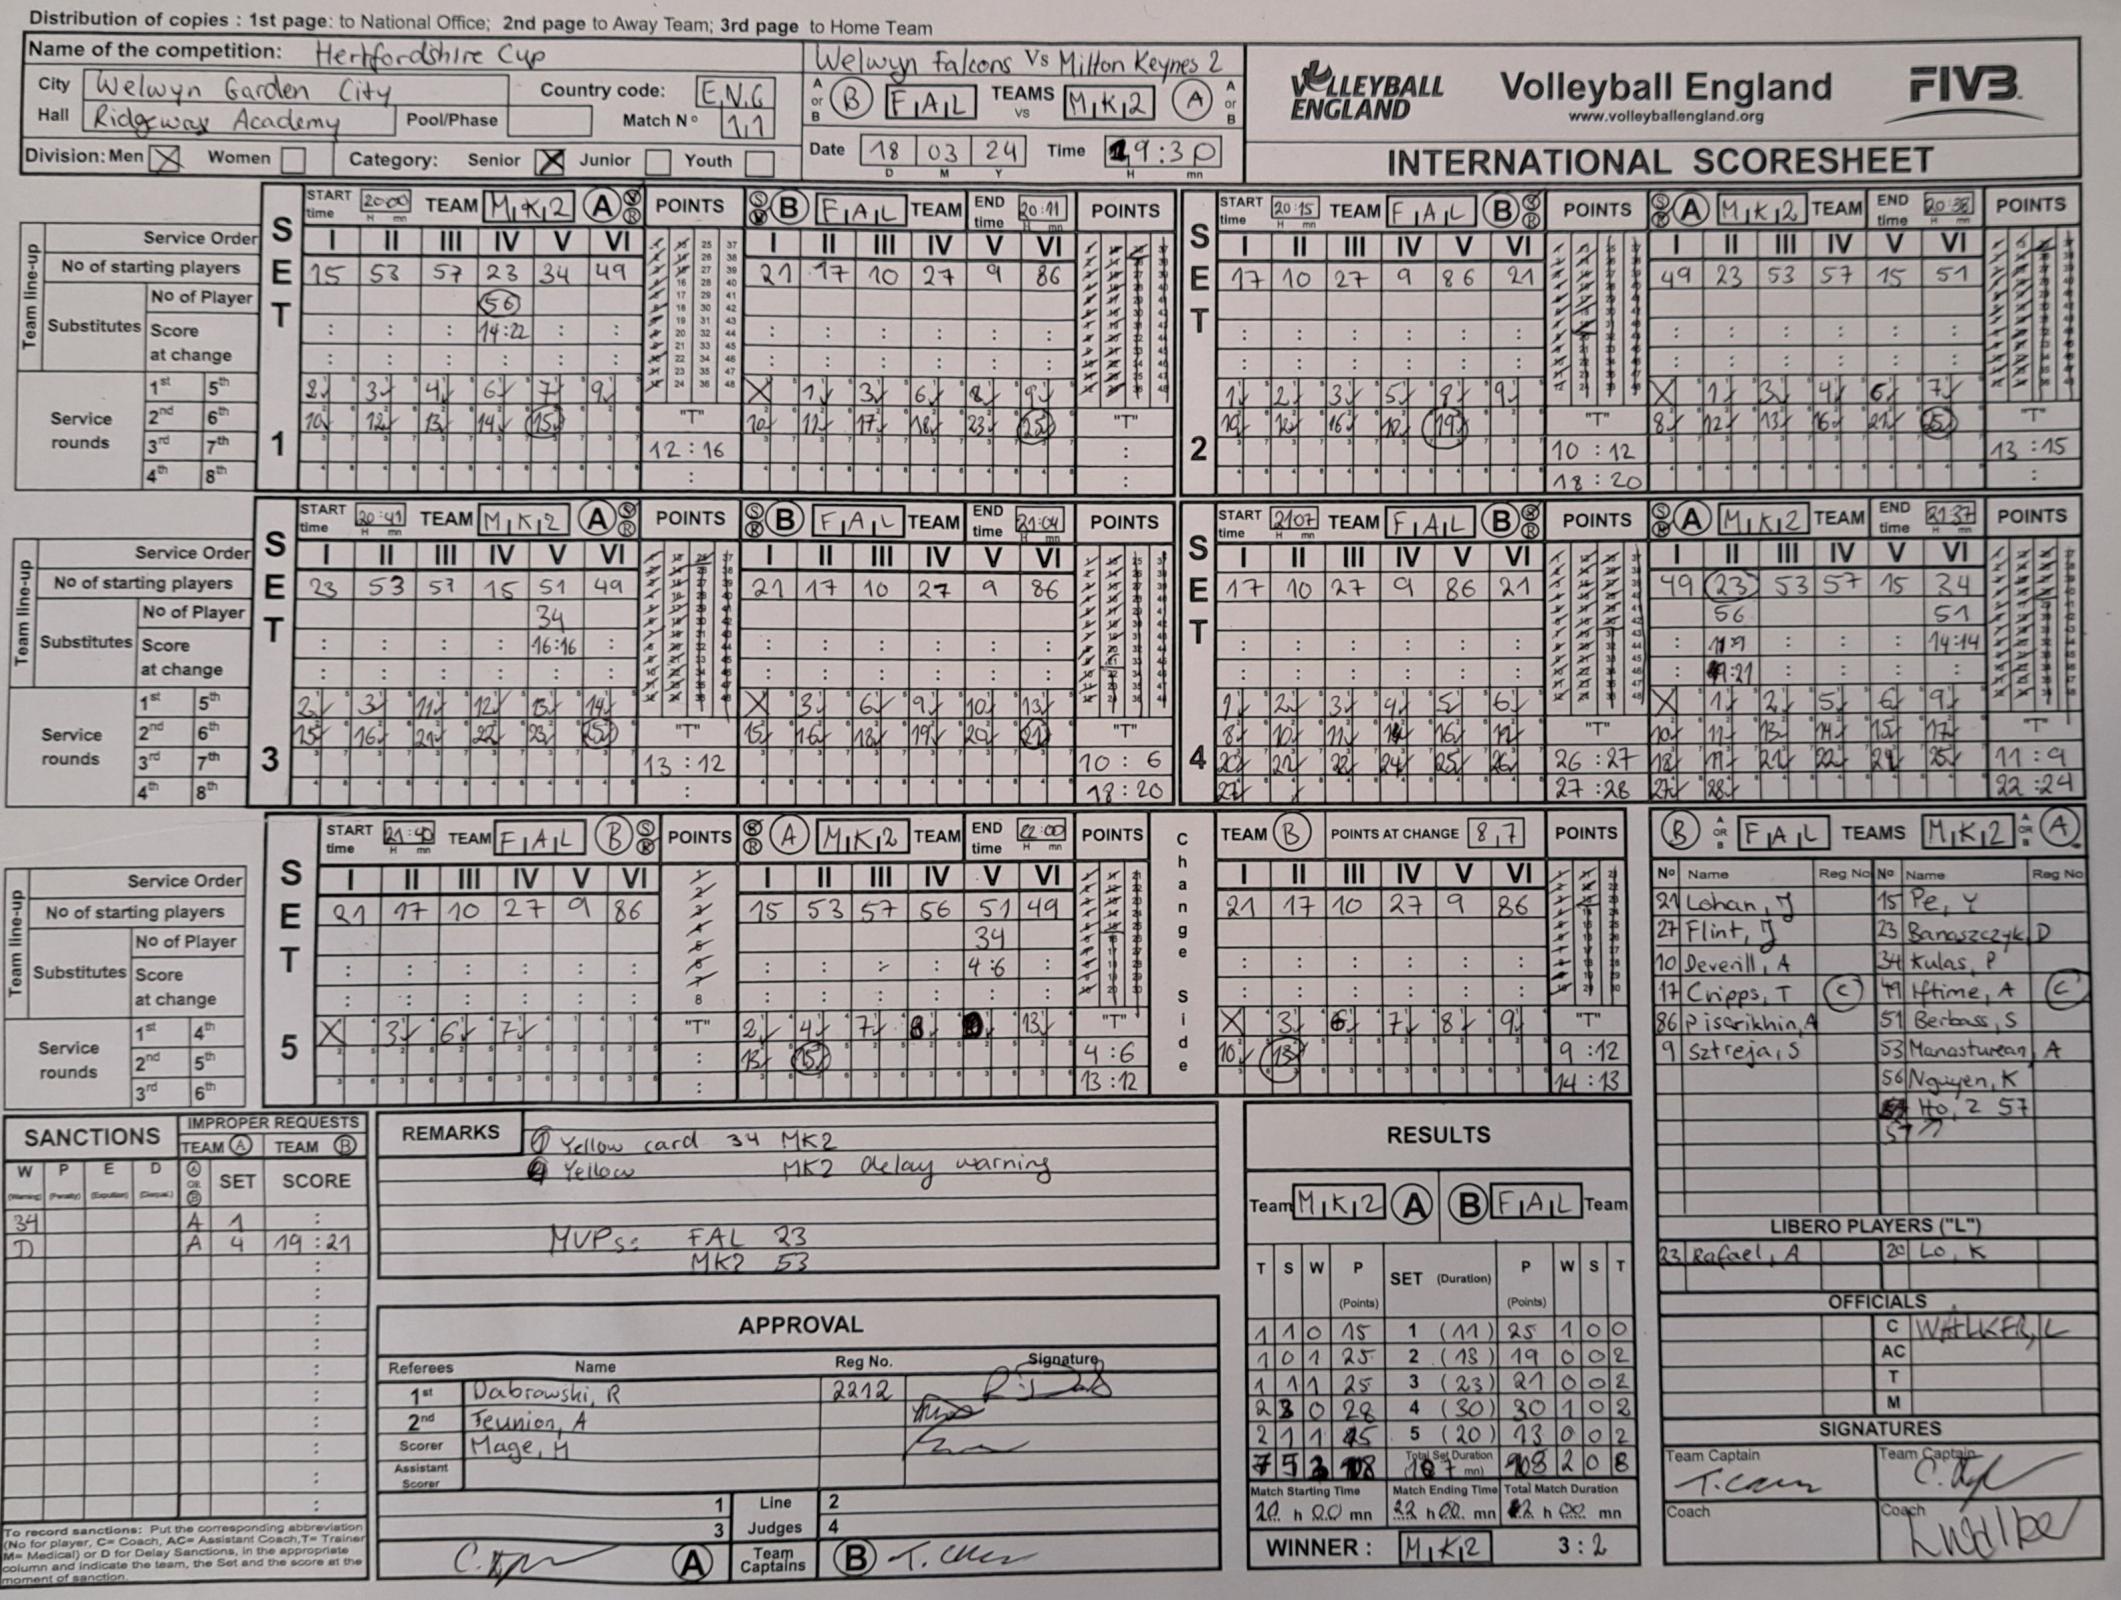 Distribution of copies : 1st page: to National Office; 2nd page to Away Team; 3rd page to Home Team
Name of the competition: Hertfordshire Cup
Welwyn Falcons Vs Milton Keynes 2
City Welwyn Garden City Country code: ENG
Hall Ridgeway Academy Pool/Phase Match Nº 11
A or B B FAL TEAMS vs MK2 A A or B
Date 18 03 24 Time 19:30
D M Y H mn
Division: Men X Women Category: Senior X Junior Youth
VOLLEYBALL ENGLAND
Volleyball England
www.volleyballengland.org
FIVB
INTERNATIONAL SCORESHEET
SET 1
START time 20:00 TEAM MK2 A S R POINTS S R B FAL TEAM END time 20:11 POINTS
Team line-up
Service Order I II III IV V VI I II III IV V VI
No of starting players 15 53 57 23 34 49 21 17 10 27 9 86
Substitutes No of Player 56
Score at change 14:22
Service rounds
1st 5th 2 3 4 6 7 9 X 1 3 6 8 9
2nd 6th 10 12 13 14 15 "T" 10 11 17 18 23 25 "T"
3rd 7th 12:16
4th 8th
SET 2
START time 20:15 TEAM FAL B S R POINTS S R A MK2 TEAM END time 20:38 POINTS
I II III IV V VI I II III IV V VI
17 10 27 9 86 21 49 23 53 57 15 51
1 2 3 5 8 9 X 1 3 4 6 7
19 "T" 8 12 13 16 21 25 "T"
10:12 13:15
18:20
SET 3
START time 20:41 TEAM MK2 A S R POINTS S R B FAL TEAM END time 21:04 POINTS
Team line-up
Service Order I II III IV V VI I II III IV V VI
No of starting players 23 53 57 15 51 49 21 17 10 27 9 86
Substitutes No of Player 34
Score at change 16:16
Service rounds
1st 5th 2 3 11 12 13 14 X 3 6 9 10 13
2nd 6th 15 16 21 22 23 25 "T" 15 16 18 19 20 21 "T"
3rd 7th 13:12 10:6
4th 8th 18:20
SET 4
START time 21:07 TEAM FAL B S R POINTS S R A MK2 TEAM END time 21:37 POINTS
I II III IV V VI I II III IV V VI
17 10 27 9 86 21 49 23 53 57 15 34
56 51
11:9 14:14
19:21
1 2 3 4 5 6 X 1 2 5 6 9
8 10 11 14 16 17 "T" 10 11 13 14 15 17 "T"
20 21 22 24 25 26 26:27 18 21 22 24 25 11:9
27 27:28 27 28 22:24
SET 5
START time 21:40 TEAM FAL B S R POINTS S R A MK2 TEAM END time 22:00 POINTS
Change Side
TEAM B POINTS AT CHANGE 8,7 POINTS
Team line-up
Service Order I II III IV V VI I II III IV V VI I II III IV V VI
No of starting players 21 17 10 27 9 86 15 53 57 56 51 49 21 17 10 27 9 86
Substitutes No of Player 34
Score at change 4:6
Service rounds
1st 4th X 3 6 7 "T" 2 4 7 8 13 "T" X 3 6 7 8 9 "T"
2nd 5th 13 15 4:6 10 13 9:12
3rd 6th 13:12 14:13
B A OR B FAL TEAMS MK2 A OR B A
Nº Name Reg No Nº Name Reg No
21 Lohan, J 15 Pe, Y
27 Flint, J 23 Banaszczyk D
10 Deverill, A 34 Kulas, P
17 Cripps, T C 49 Iftime, A C
86 Pisarikhin, A 51 Berbass, S
9 Sztreja, S 53 Manasturean, A
56 Nguyen, K
Ho, Z 57
57
LIBERO PLAYERS ("L")
23 Rafael, A 20 Lo, K
OFFICIALS
C WALKER, L
AC
T
M
SIGNATURES
Team Captain Team Captain
Coach Coach
SANCTIONS
IMPROPER REQUESTS
TEAM A TEAM B
W (Warning) P (Penalty) E (Expulsion) D (Disqual.) A OR B SET SCORE
34 A 1 :
D A 4 19:21
To record sanctions: Put the corresponding abbreviation
(No for player, C= Coach, AC= Assistant Coach,T= Trainer
M= Medical) or D for Delay Sanctions, in the appropriate
column and indicate the team, the Set and the score at the
moment of sanction.
REMARKS
1 Yellow card 34 MK2
Yellow MK2 delay warning
MVPs: FAL 23
MK2 53
APPROVAL
Referees Name Reg No. Signature
1st Dabrowski, R 2212
2nd Feunion, A
Scorer Mage, M
Assistant Scorer
1 Line Judges 2
3 4
A Team Captains B
RESULTS
Team MK2 A B FAL Team
T S W P (Points) SET (Duration) P (Points) W S T
1 1 0 15 1 (11) 25 1 0 0
1 0 1 25 2 (13) 19 0 0 2
1 1 1 25 3 (23) 21 0 0 2
2 3 0 28 4 (30) 30 1 0 2
2 1 1 15 5 (20) 13 0 0 2
7 5 3 108 Total Set Duration (107 mn) 108 2 0 8
Match Starting Time Match Ending Time Total Match Duration
20 h 00 mn 22 h 00 mn 2 h 00 mn
WINNER : MK2 3:2